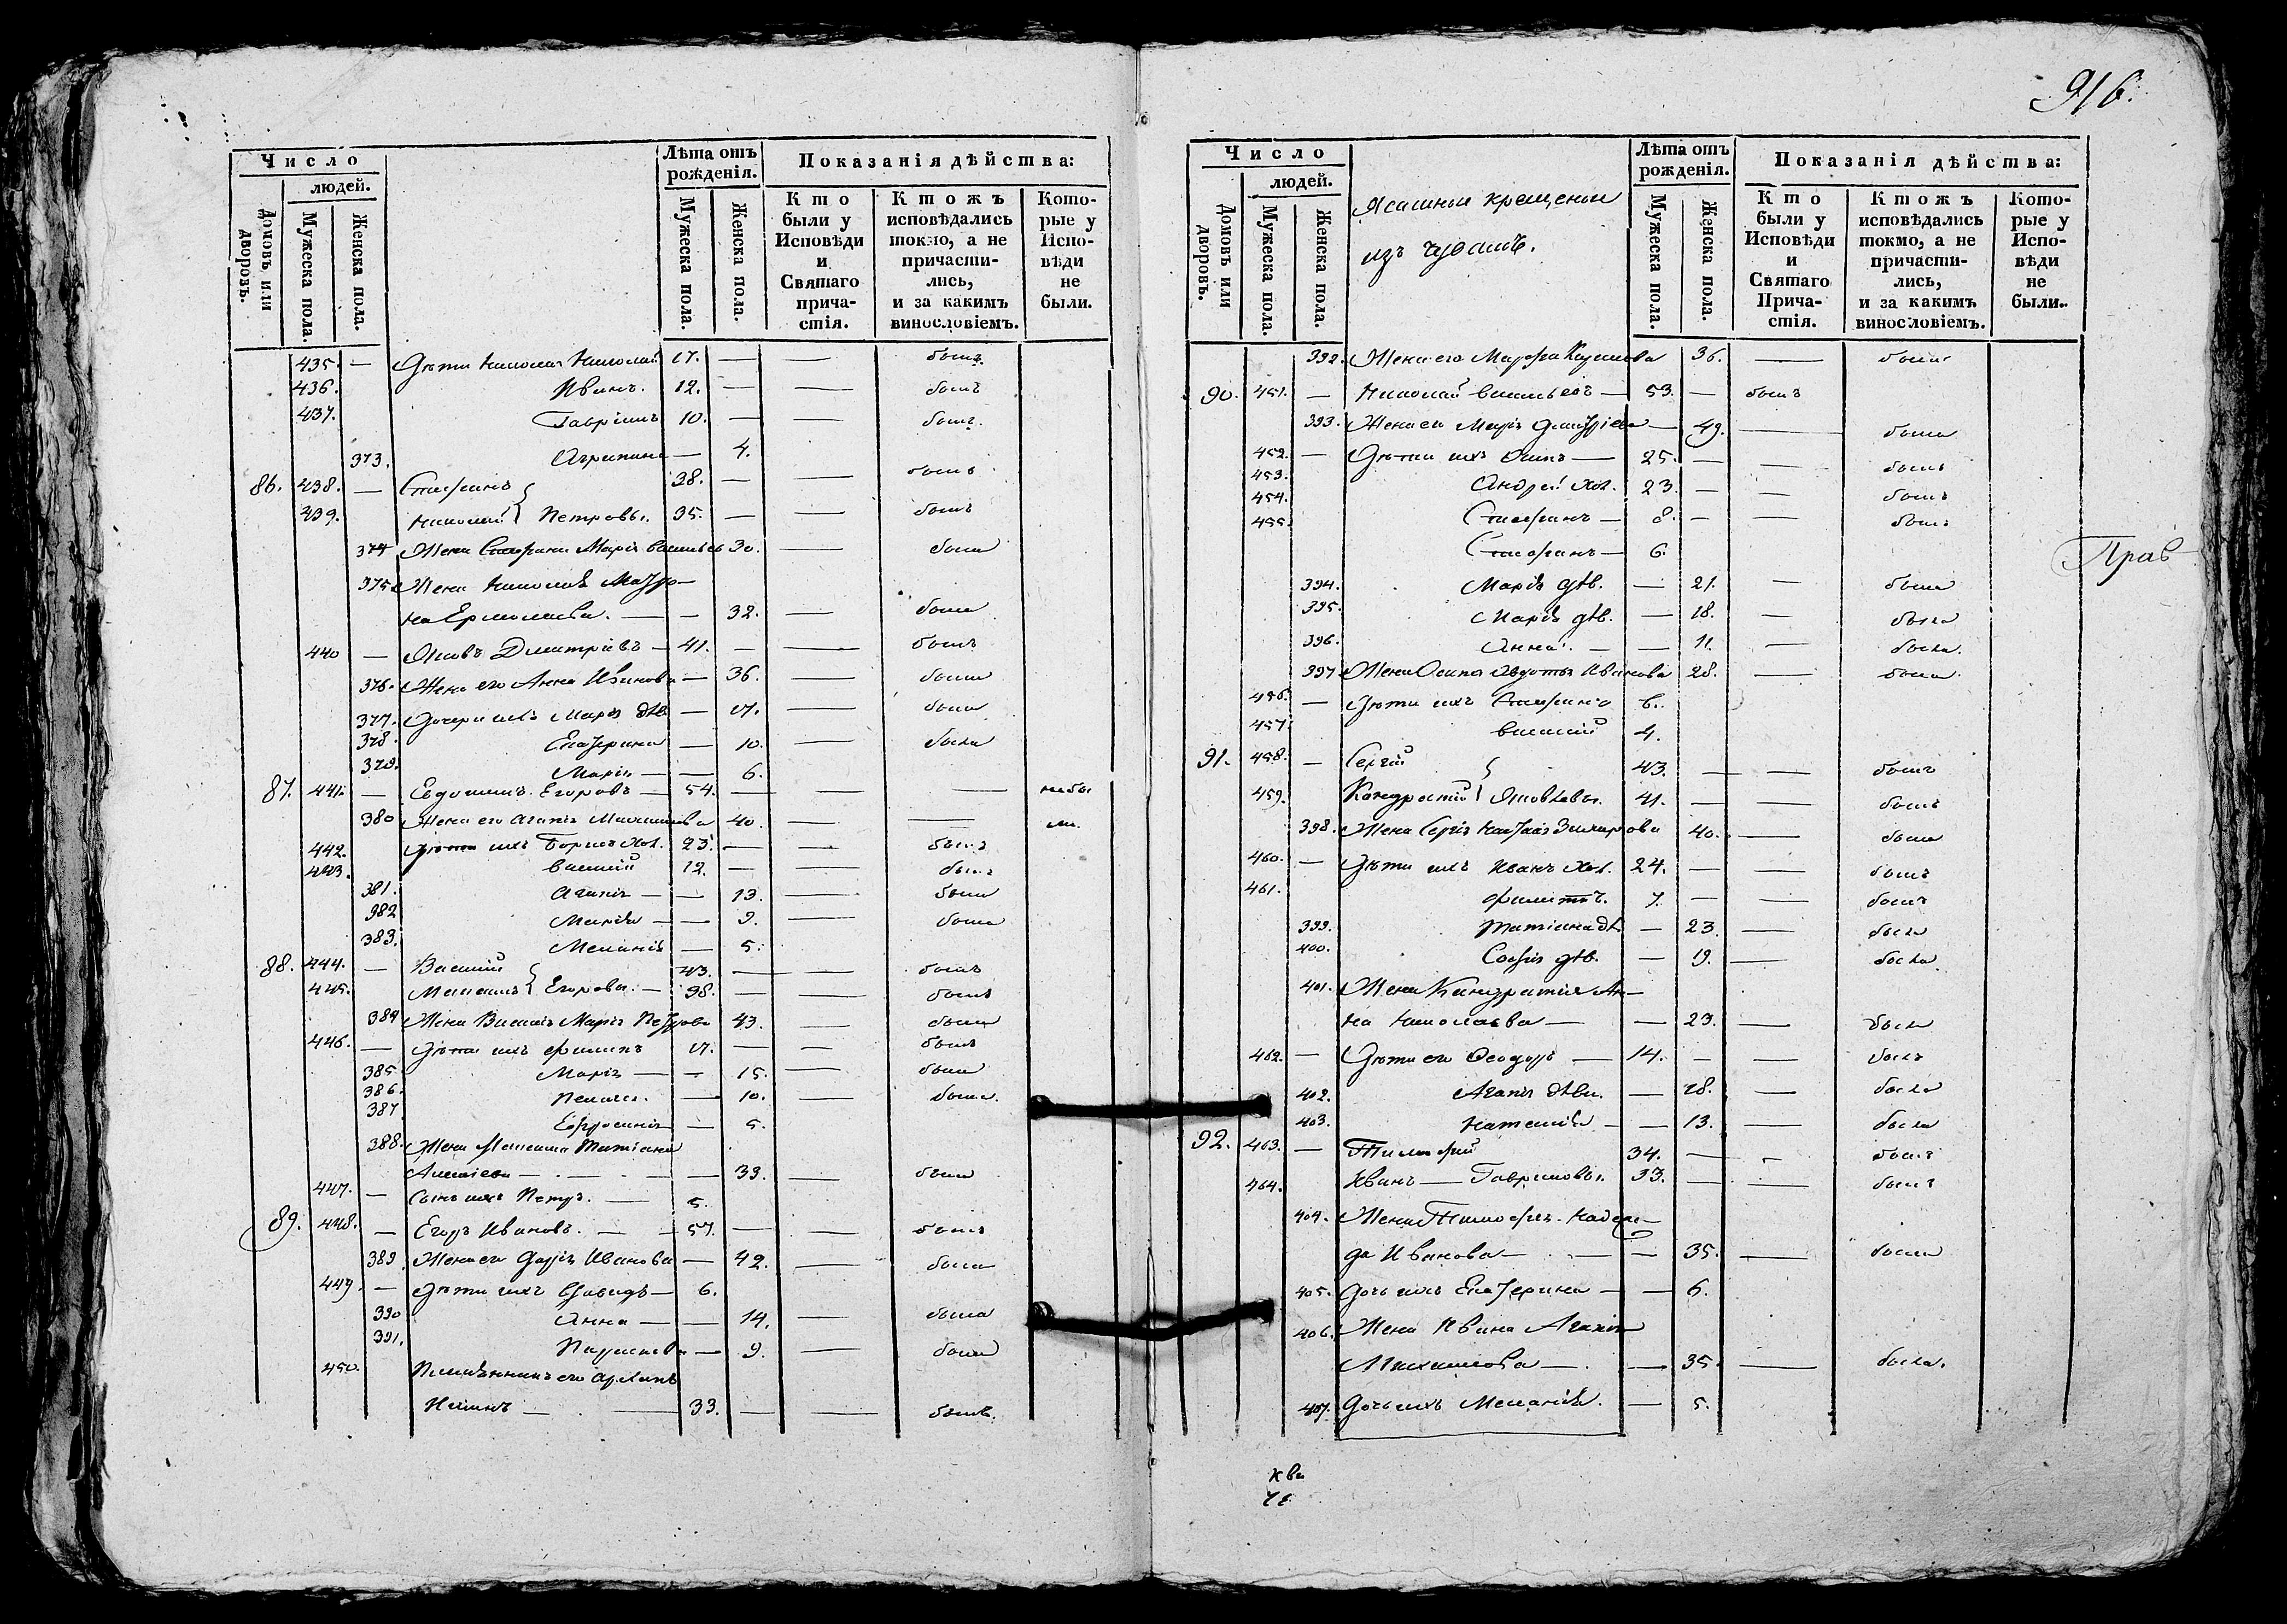 Число
людей.
Домовъ или дворовъ.
Мужеска пола.
Женска пола.
Лѣта отъ рожденія.
Мужеска пола.
Женска пола.
Показанія дѣйства:
Кто были у Исповѣди и Святаго причастія.
Ктожъ исповѣдались токмо, а не причастились, и за какимъ винословіемъ.
Которые у Исповѣди не были.
435. — Дѣти Николая Николай 17. — — былъ
436. Иванъ. 12. — — былъ
437. Гавріилъ 10. — — былъ.
373. Агрипина — 4.
86. 438. — Стефанъ 38. — — былъ
439. Николай Петровы. 35. — — былъ
374 Жена Стефана Марія Васильев 30. — была
375 Жена Николая Матро-
на Ермолаева. — — 32. — была
440 — Яковъ Димитріевъ — 41. — — былъ
376. Жена его Анна Иванова — 36. — была
377. Дочери ихъ Марія дѣв — 17. — была
378. Екатерина — 10. — была
379. Марія — — 6.
87. 441. — Евдокимъ Егоровъ — 54. — — — небы
380 Жена его Агапія Михаилова 40. — — ли.
442. Дѣти ихъ Борисъ хол. 23. — — былъ
443. Василий 12. — — былъ
381. Агапія — — 13. — была
382 Марія — — 9. — была
383. Меланія — 5.
88. 444. — Василий 43. — — былъ
445. Егоровы. — 38. — — былъ
384 Жена Василія Марія Петрова 43. — была
446. — Дѣти ихъ Филипъ 17. — — былъ
385 Марія — — 15. — была
386. — 10. — была.
387 Ефросинія — 5.
388. Жена Татіана
— — 33. — была
447. — Сынъ ихъ Петръ. — 5.
89. 448. — Егоръ Ивановъ. — 57. — — былъ
389. Жена его Дарія Иванова — 42. — была
449. — Дѣти ихъ Давидъ — 6.
390 Анна — — 14. — была
391. Параскева — 9. — была
450. Племянникъ его Архипъ
— — 33. — — былъ.
916.
Число
людей.
Домовъ или дворовъ.
Мужеска пола.
Женска пола.
Ясашныи крещеныи
изъ чувашъ.
Лѣта отъ рожденія.
Мужеска пола.
Женска пола.
Показанія дѣйства:
Кто были у Исповѣди и Святаго Причастія.
Ктожъ исповѣдались токмо, а не причастились, и за какимъ винословіемъ.
Которые у Исповѣди не были.
392. Жена его Марфа 36. — была
90. 451. — Николай Васильевъ — 53. — былъ
393. Жена его Марія Димитріева — 49. — была
452. — Дѣти ихъ Осипъ — 25. — — былъ
453. Андрей хол. 23. — — былъ
454. Стефанъ — 8. — — былъ
455. Стефанъ — 6.
Прав
394. Марія дѣв. — 21. — была
395. Марія дѣв. — 18. — была
396. Анна. — — 11. — была.
397 Жена Осипа Авдотья Иванова 28. — была
456. — Дѣти ихъ Стефанъ 6.
457. Василий 4.
91. 458. — Сергій 43. — — былъ
459. Кондратий Яковлевы. 41. — — былъ
398. Жена Сергія Захарова 40. — была
460. — Дѣти ихъ Иванъ хол. 24. — — былъ
461. 7. — — былъ
399. Татіана дѣ — 23. — была
400. Софія дѣв. — 19. — была
401. Жена Кондратія Ан-
на Николаева — — 23. — была
462. — Дѣти его Феодоръ — 14. — — былъ
402. Агапія дѣви. — 18. — была
403. Наталія — — 13. — была
92. 463. — Тимофий 34. — — былъ
464. Иванъ — Гавриловы. 33. — — былъ
404. Жена Тимофея Надеж-
да Иванова — — 35. — была
405. Дочь ихъ Екатерина — — 6.
406. Жена Ивана Агапія
Михаилова — — 35. — была.
407. Дочь ихъ Меланія. — 5.